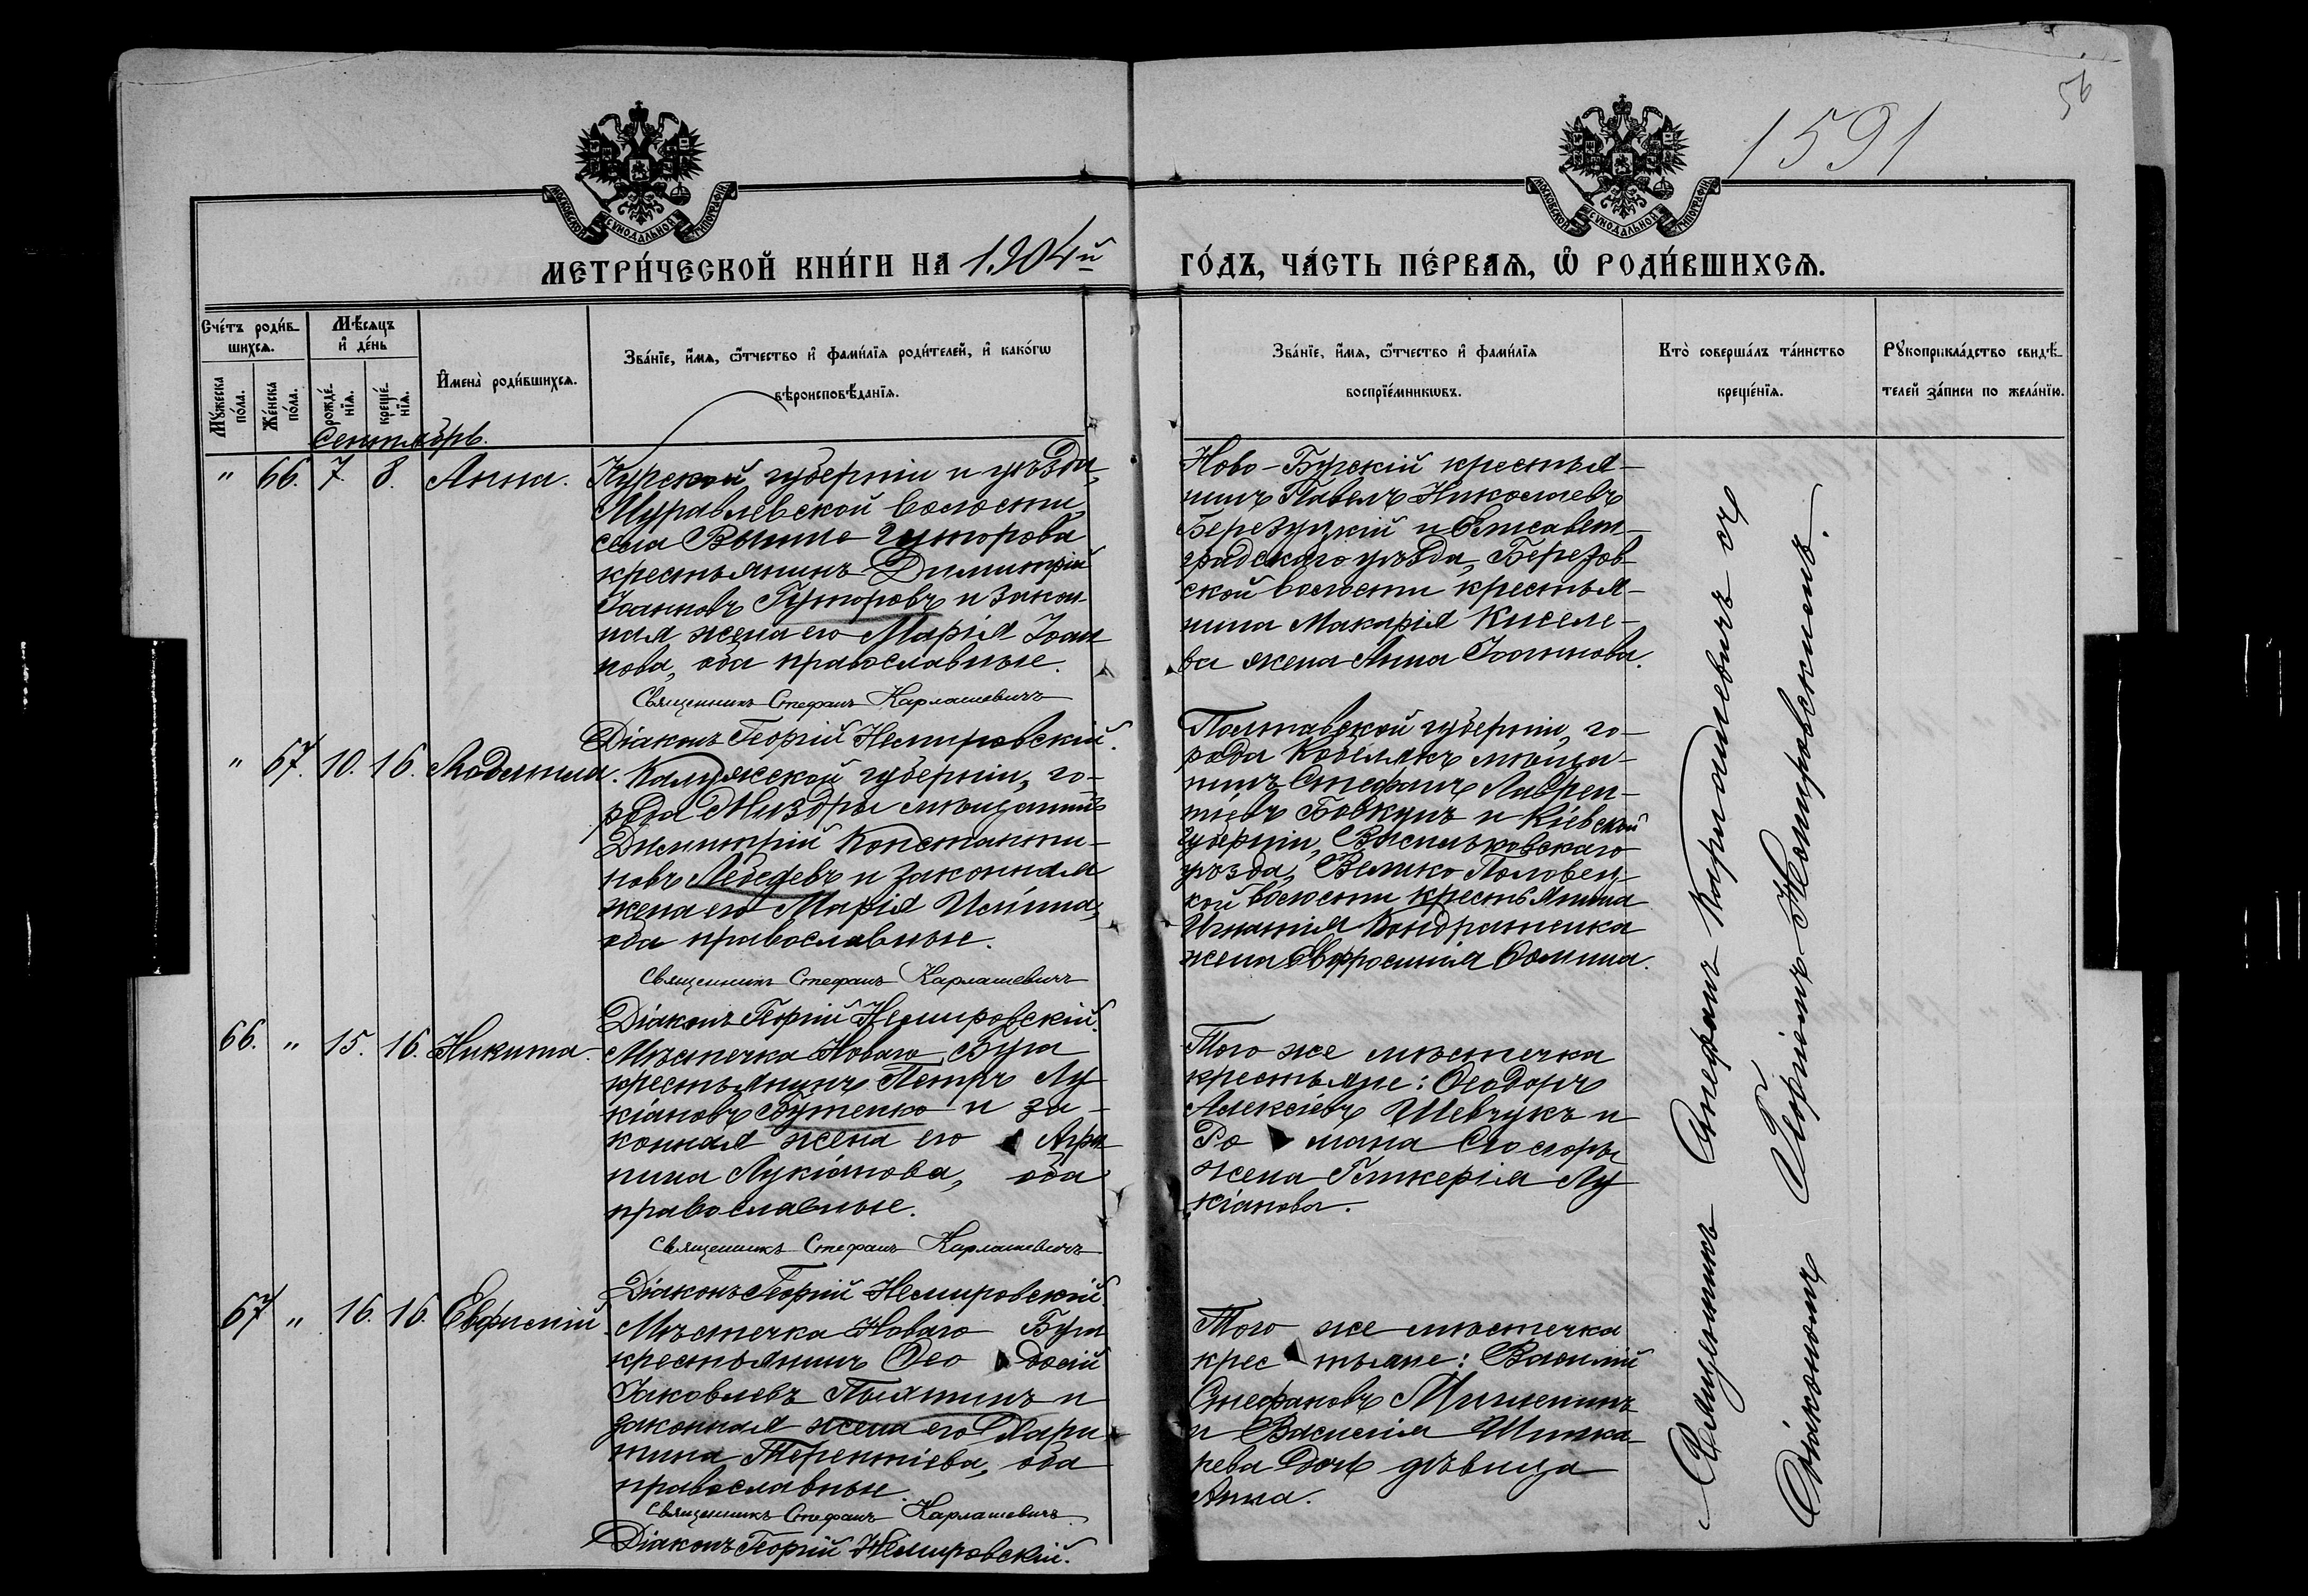 56
1591
МОСКОВСКОЙ СѴНОДАЛЬНОЙ ТИПОГРАФІИ
МОСКОВСКОЙ СѴНОДАЛЬНОЙ ТИПОГРАФІИ
МЕТРИ́ЧЕСКОЙ КНИ́ГИ НА 1904й
ГО́ДЪ, ЧА́СТЬ ПЕ́РВАѦ, Ѡ҆ РОДИ́ВШИХСѦ.
Сче́тъ роди́в-
шихсѧ.
Мѣ́сѧцъ
и҆ де́нь
Мꙋ́жеска
по́ла.
Же́нска
по́ла.
рожде́-
нїѧ.
креще́-
нїѧ.
И҆мена̀ роди́вшихсѧ.
Зва́нїе, и҆́мѧ, ѻ҆́тчество и҆ фами́лїѧ роди́телей, и҆ како́гѡ
вѣроисповѣ́данїѧ.
Зва́нїе, и҆́мѧ, ѻ҆́тчество и҆ фами́лїѧ
воспрїе́мникѡвъ.
Кто̀ соверша́лъ та́инство
креще́нїѧ.
Рꙋкоприкла́дство свидѣ́-
телей за́писи по жела́нїю.
Сентябрь.
" 66. 7. 8. Анна.
Курской губерніи и уѣзда,
Муравлевской волости,
села Вышне Гуторова
крестьянинъ Димитрій
Іоанновъ Гуторовъ и закон-
ная жена его Марія Іоан
нова, оба православные.
Священникъ Стефанъ Карлашевичъ
Діаконъ Георгій Немировскій.
Ново-Бугскій крестья-
нинъ Павелъ Николаевъ
Березуцкій и Елисавет-
градскаго уѣзда, Березов-
ской волости крестья-
нина Макарія Киселе-
ва жена Анна Іоаннова.
" 67. 10. 16. Людмила.
Калужской губерніи, го-
рода Жиздры мѣщанинъ
Димитрій Константи-
новъ Лебедевъ и законная
жена его Марія Ильина,
оба православные.
Священникъ Стефанъ Карлашевичъ
Діаконъ Георгій Немировскій.
Полтавской губерніи, го-
рода Кобелякъ мѣща-
нинъ Стефанъ Лаврен-
тіевъ Бовкунъ и Кіевской
губерніи, Васильковскаго
уѣзда, Велико Половец-
кой волости крестьянина
Игнатія Кондратенка
жена Евфросинія Ѳомина.
66. " 15. 16. Никита.
Мѣстечка Новаго Буга
крестьянинъ Петръ Лу
кіановъ Бутенко и за-
конная жена его Агри
пина Лукіанова, оба
православные.
Священникъ Стефанъ Карлашевичъ
Діаконъ Георгій Немировскій.
Того же мѣстечка
крестьяне: Ѳеодоръ
Алексіевъ Шевчукъ и
Ро мана
жена Гликерія Лу
кіанова.
67 " 16. 16. Евфимій.
Мѣстечка Новаго Буга
крестьянинъ Ѳео досій
Іаковлевъ и
законная жена его Хари
тина Терентіева, оба
православные.
Священникъ Стефанъ Карлашевичъ.
Діаконъ Георгій Немировскій.
Того же мѣстечка
крес тьяне: Василій
Стефановъ
и Василія Шинка
рева дочь дѣвица
Анна.
Священникъ Стефанъ Карлашевичъ съ
Діакономъ Георгіемъ Немировскимъ.